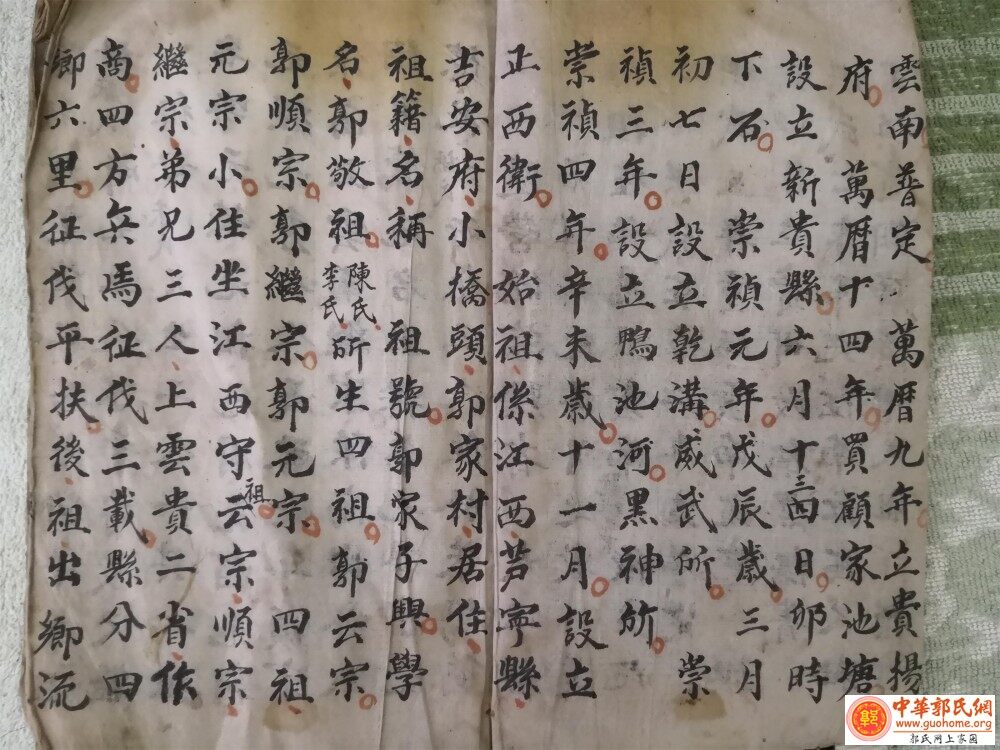 雲南普定 萬曆九年立貴揚
府 萬曆十四年買顧家池塘
設立新貴縣六月十三四日卯時
下石 崇禎元年戊辰歲三月
初七日設立乾溝威武所 崇
禎三年設立鴨池河黑神所
崇禎四年辛未歲十一月設立
正西衛 始祖係江西芦寧縣
吉安府小橋頭郭家村居住
祖籍名稱 祖號郭家子興學
名郭敬祖陳氏李氏所生四祖郭云宗
郭順宗郭繼宗郭元宗 四祖
元宗小住坐江西守祖云宗順宗
繼宗弟兄三人上雲貴二省作
商四方兵馬征伐三載縣分四
鄉六里征伐平扶後祖出鄉流
中華郭氏網
www.guohome.org
郭氏网上家园